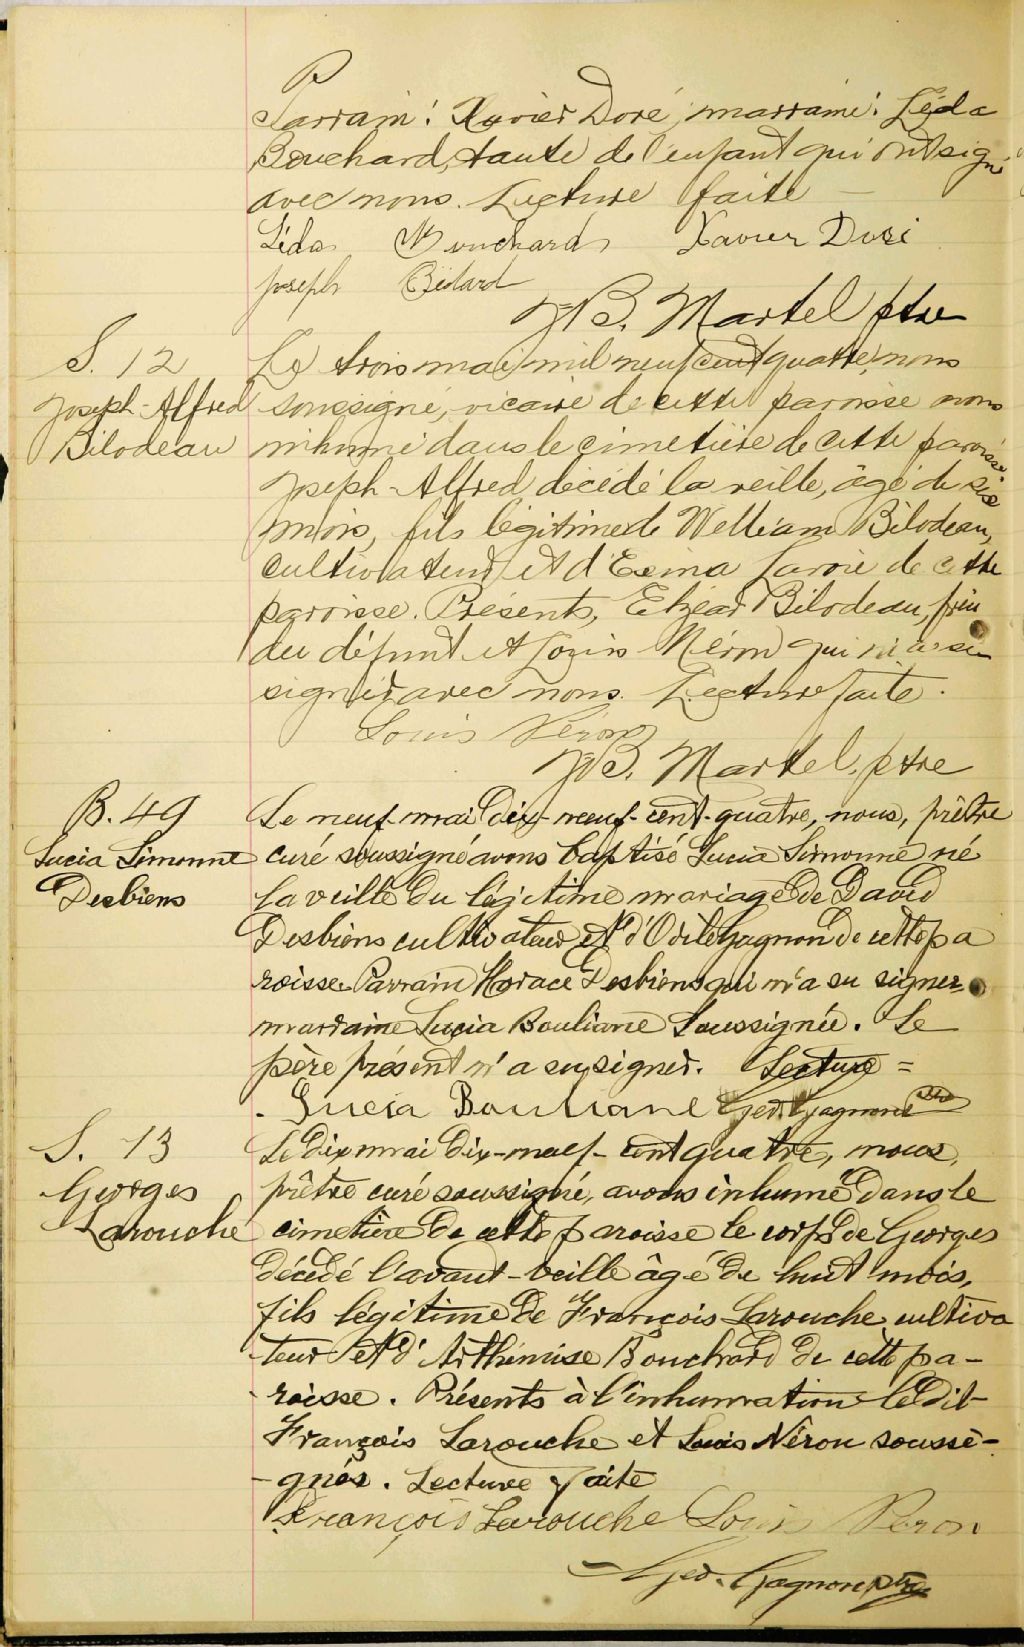 Parrain: Xavier Doré, marraine: Léda
Bouchard, tante de l'enfant qui ont signé
avec nous. Lecture faite —
Léda Bouchard Xavier Doré
Joseph Bédard
J.B. Martel ptre
S. 12
Joseph-Alfred
Bilodeau
Le trois mai mil neuf cent quatre, nous
soussigné, vicaire de cette paroisse avons
inhumé dans le cimetière de cette paroisse
Joseph-Alfred décédé la veille, âgé de six
mois, fils légitime de William Bilodeau,
cultivateur et d'Exina Lavoie de cette
paroisse. Présents, Elzéar Bilodeau, frère
du défunt et Louis Néron qui n'a su
signer avec nous. Lecture faite.
Louis Néron
J.B. Martel, ptre
B. 49
Lucia Simonne
Desbiens
Le neuf mai dix-neuf-cent-quatre, nous, prêtre
curé soussigné avons baptisé Lucia Simonne né
la veille du légitime mariage de David
Desbiens cultivateur et d'Odile Gagnon de cette pa
roisse. Parrain Horace Desbiens qui n'a su signer=
marraine Lucia Bouliane soussignée. Le
père présent n'a su signer. Lecture =
Lucia Bouliane Ged. Gagnon ptre
S. 13
Georges
Larouche
Le dix mai dix-neuf-cent quatre, nous,
prêtre curé soussigné, avons inhumé dans le
cimetière de cette paroisse le corps de Georges
décédé l'avant-veille âgé de huit mois,
fils légitime de François Larouche cultiva
teur et d'Arthémise Bouchard de cette pa-
roisse. Présents à l'inhumation le dit
François Larouche et Louis Néron soussi-
-gnés. Lecture faite
François Larouche Louis Neron
Ged. Gagnon ptre